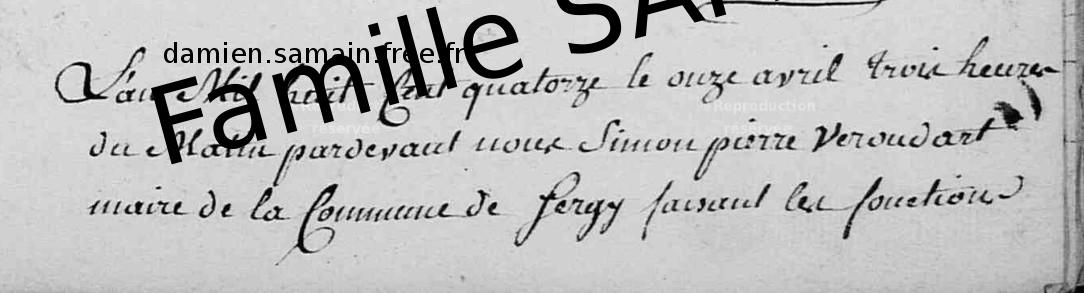 damien.samain.free.fr
Famille SA
L'an Mil huit Cent quatorze le onze avril trois heures
Reproduction
réservée
@Reproduction
réservée
du Matin pardevant nous Simon pierre Veroudart
maire de la Commune de fergy faisant les fonctions